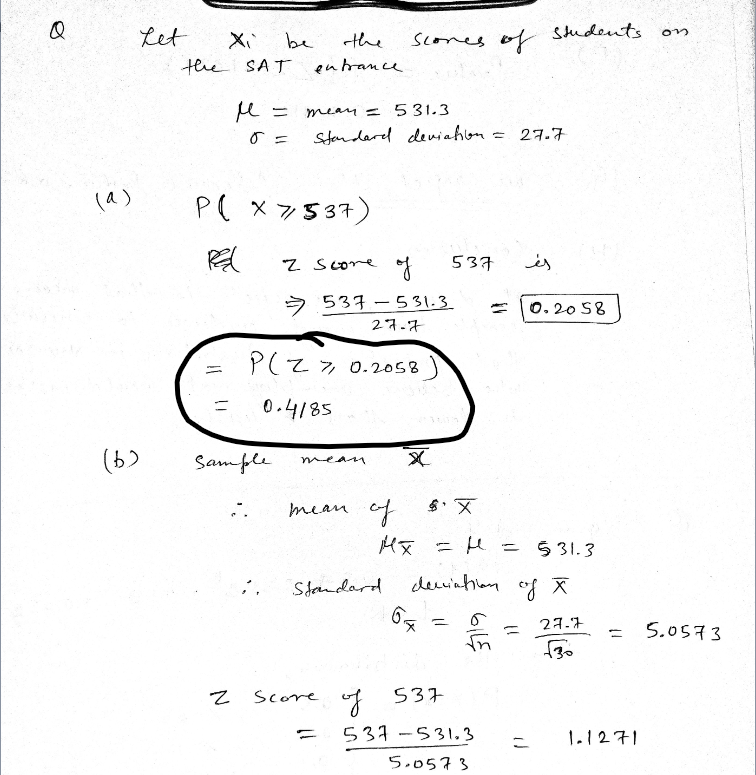 Q Let Xi be the scores of students on
the SAT entrance
μ = mean = 531.3
σ = standard deviation = 27.7
(a) P( X ⩾ 537)
Z score of 537 is
⇒ (537 - 531.3)/27.7 = 0.2058
= P(Z ⩾ 0.2058)
= 0.4185
(b) Sample mean X̅
∴ mean of X̅
μX̅ = μ = 531.3
∴ standard deviation of X̅
σX̅ = σ/√n = 27.7/√30 = 5.0573
Z score of 537
= (537 - 531.3)/5.0573 = 1.1271